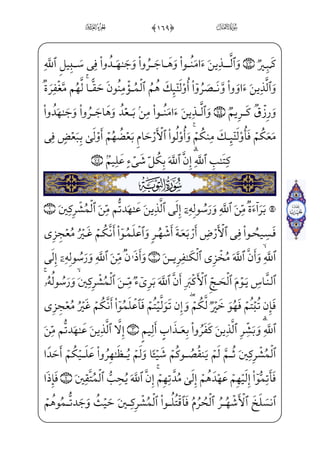 سُورَةُ الأَنفَالِ ﴿١٦٩﴾ الجُزْءُ العَاشِرُ
كَبِيرٌ ۝٧٣ وَٱلَّذِينَ ءَامَنُوا۟ وَهَاجَرُوا۟ وَجَـٰهَدُوا۟ فِى سَبِيلِ ٱللَّهِ
وَٱلَّذِينَ ءَاوَوا۟ وَّنَصَرُوٓا۟ أُو۟لَـٰٓئِكَ هُمُ ٱلْمُؤْمِنُونَ حَقًّا ۚ لَّهُم مَّغْفِرَةٌ
وَرِزْقٌ كَرِيمٌ ۝٧٤ وَٱلَّذِينَ ءَامَنُوا۟ مِنۢ بَعْدُ وَهَاجَرُوا۟ وَجَـٰهَدُوا۟
مَعَكُمْ فَأُو۟لَـٰٓئِكَ مِنكُمْ ۚ وَأُو۟لُوا۟ ٱلْأَرْحَامِ بَعْضُهُمْ أَوْلَىٰ بِبَعْضٍ فِى
كِتَـٰبِ ٱللَّهِ ۗ إِنَّ ٱللَّهَ بِكُلِّ شَىْءٍ عَلِيمٌ ۝٧٥
سُورَةُ التَّوْبَةِ
بَرَآءَةٌ مِّنَ ٱللَّهِ وَرَسُولِهِۦٓ إِلَى ٱلَّذِينَ عَـٰهَدتُّم مِّنَ ٱلْمُشْرِكِينَ ۝١
فَسِيحُوا۟ فِى ٱلْأَرْضِ أَرْبَعَةَ أَشْهُرٍ وَٱعْلَمُوٓا۟ أَنَّكُمْ غَيْرُ مُعْجِزِى
ٱللَّهِ ۙ وَأَنَّ ٱللَّهَ مُخْزِى ٱلْكَـٰفِرِينَ ۝٢ وَأَذَٰنٌ مِّنَ ٱللَّهِ وَرَسُولِهِۦٓ إِلَى
ٱلنَّاسِ يَوْمَ ٱلْحَجِّ ٱلْأَكْبَرِ أَنَّ ٱللَّهَ بَرِىٓءٌ مِّنَ ٱلْمُشْرِكِينَ ۙ وَرَسُولُهُۥ ۚ
فَإِن تُبْتُمْ فَهُوَ خَيْرٌ لَّكُمْ ۖ وَإِن تَوَلَّيْتُمْ فَٱعْلَمُوٓا۟ أَنَّكُمْ غَيْرُ مُعْجِزِى
ٱللَّهِ ۗ وَبَشِّرِ ٱلَّذِينَ كَفَرُوا۟ بِعَذَابٍ أَلِيمٍ ۝٣ إِلَّا ٱلَّذِينَ عَـٰهَدتُّم مِّنَ
ٱلْمُشْرِكِينَ ثُمَّ لَمْ يَنقُصُوكُمْ شَيْـًٔا وَلَمْ يُظَـٰهِرُوا۟ عَلَيْكُمْ أَحَدًا
فَأَتِمُّوٓا۟ إِلَيْهِمْ عَهْدَهُمْ إِلَىٰ مُدَّتِهِمْ ۚ إِنَّ ٱللَّهَ يُحِبُّ ٱلْمُتَّقِينَ ۝٤ فَإِذَا
ٱنسَلَخَ ٱلْأَشْهُرُ ٱلْحُرُمُ فَٱقْتُلُوا۟ ٱلْمُشْرِكِينَ حَيْثُ وَجَدتُّمُوهُمْ